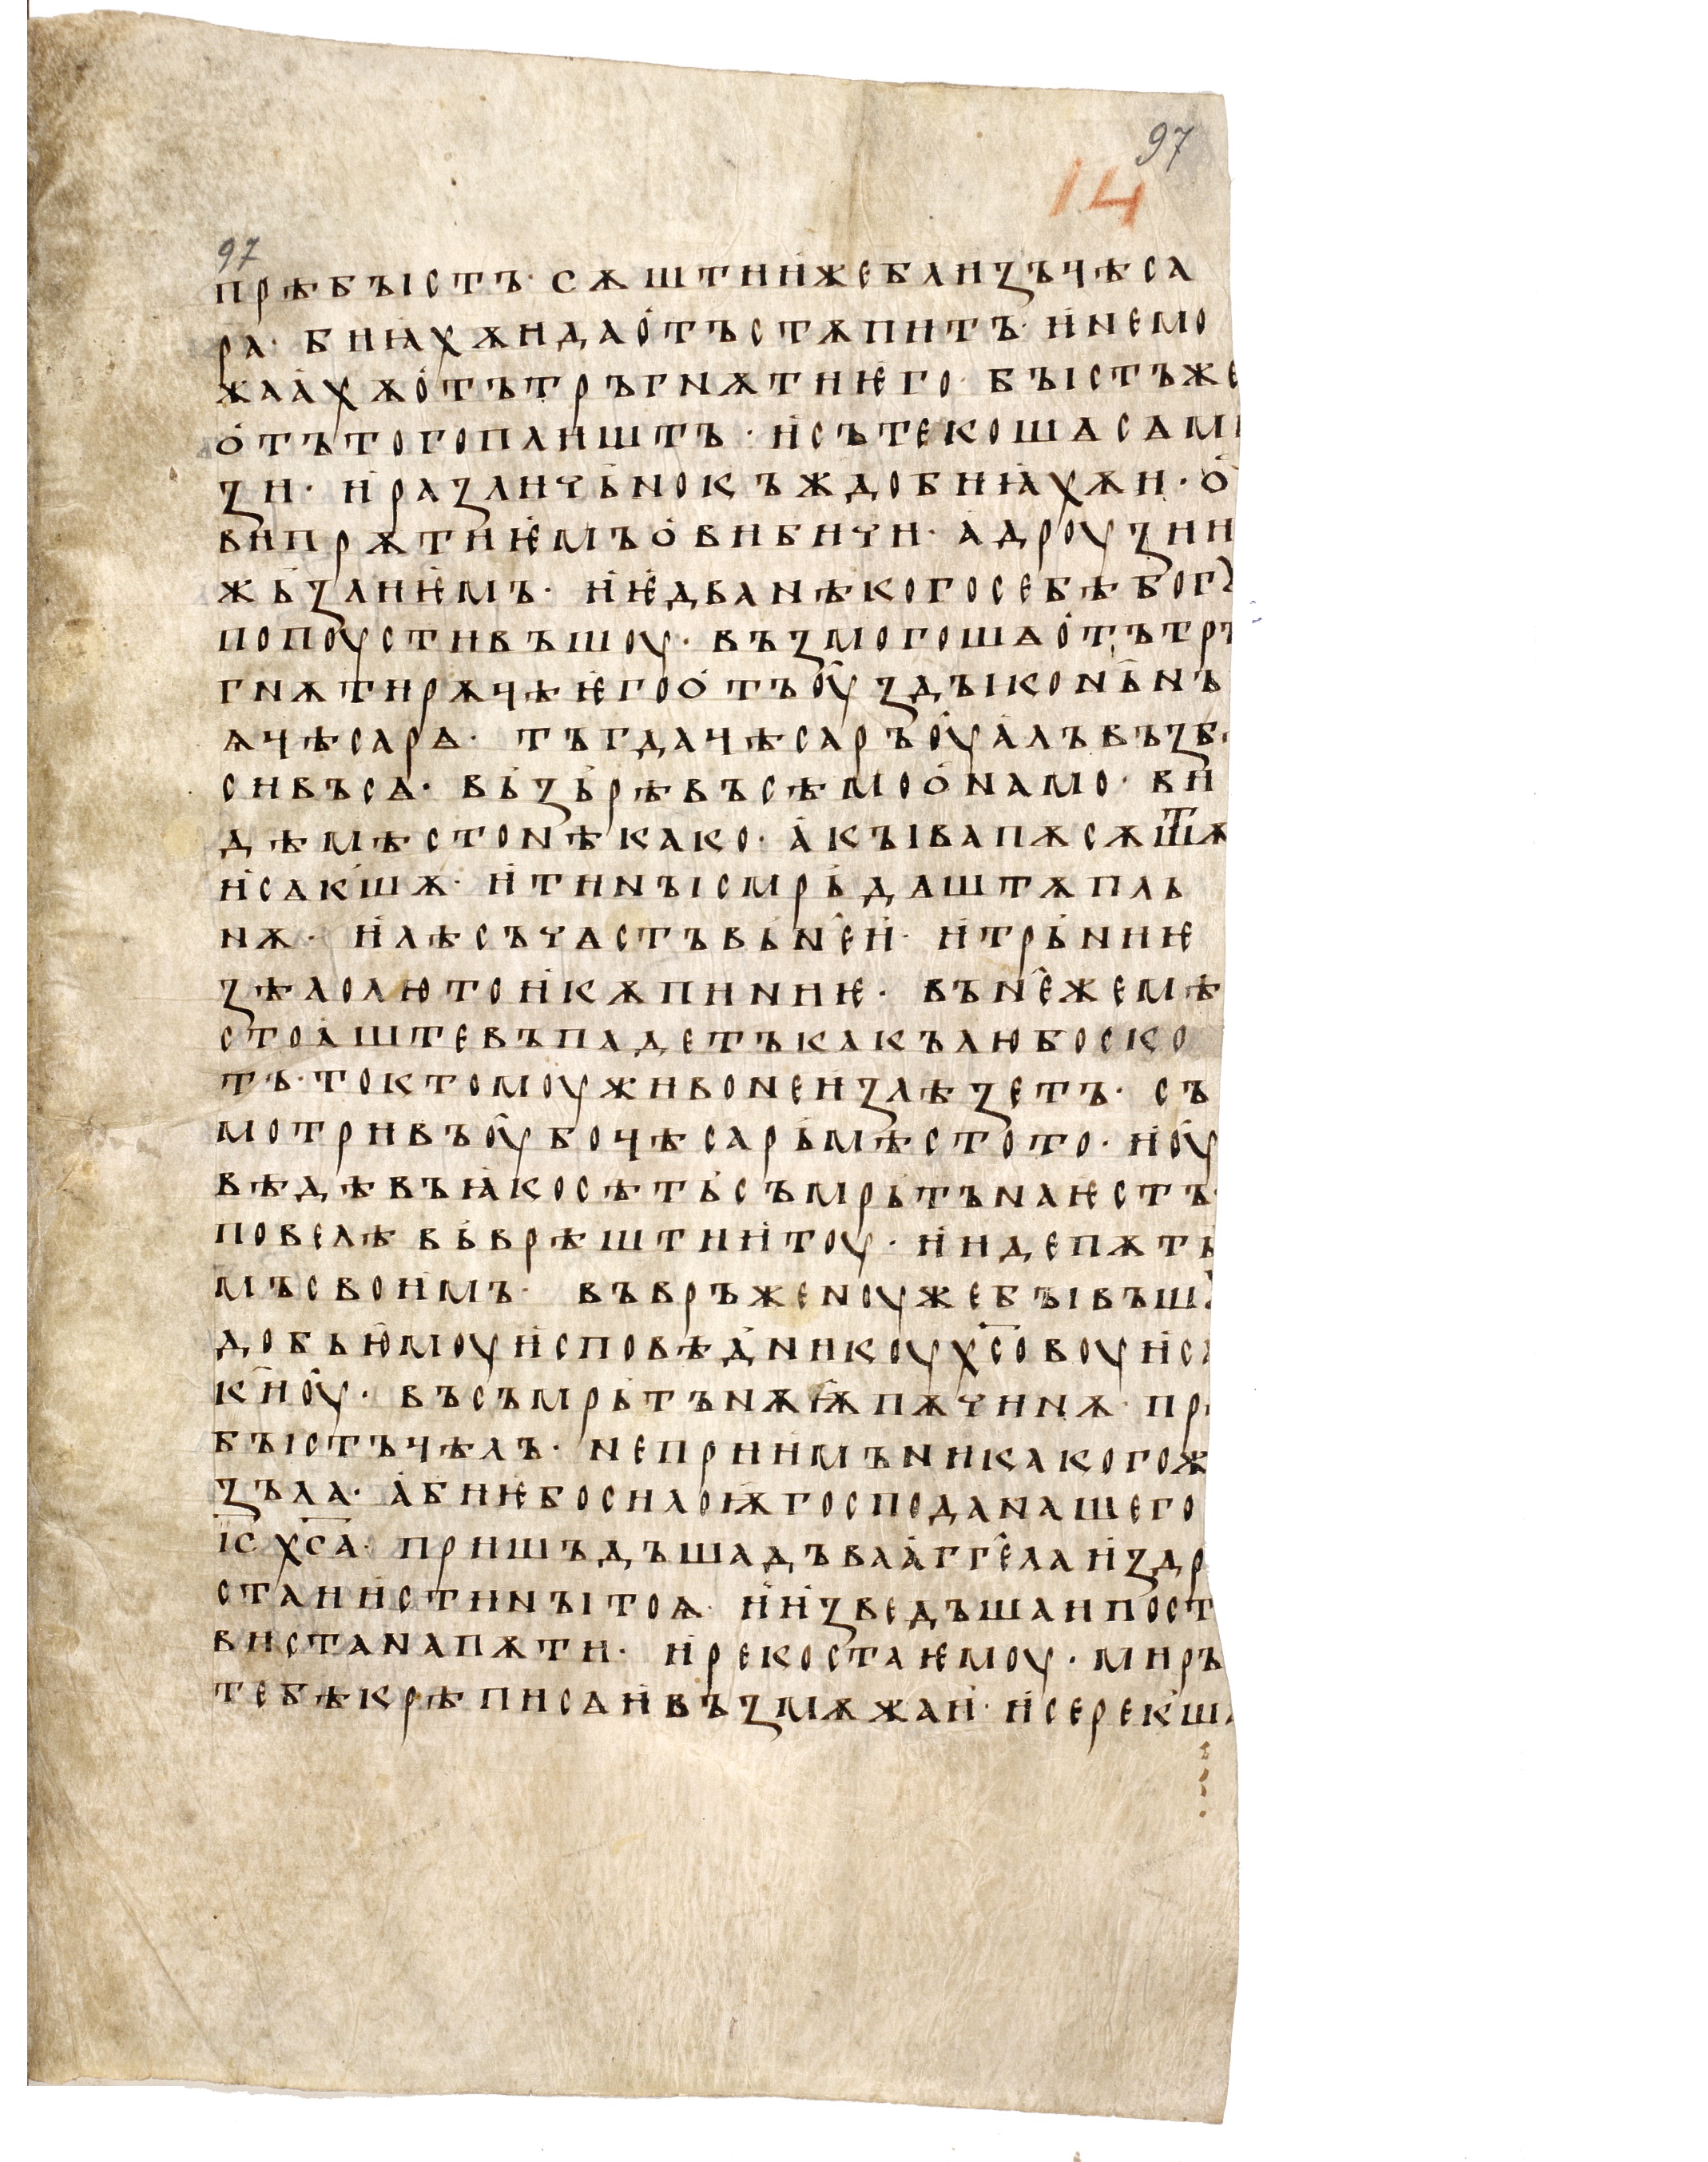 97
14
97
прѣбꙑстъ· сѫштии́жеблизъчѣса
ра· биꙗ́хѫидао́тъстѫпитъ· и́немо
жаа́хѫо́тътръгнѫтиѥ́го· бꙑстъже
о́тътогоплиштъ· и́сътекошѧсѧм
ꙁи· и́раꙁличь́нокъждобиꙗ́хѫи· о́
випрѫтиѥ́мъо́вибичи· а́дроуꙁии
жь́ꙁлиѥ́мъ· и́ѥ́дванѣкогосебѣбогꙋ
попоустивъшоу· въꙁмогошѧо́тътръ
гнѫтирѫчѣѥ́гоо́тъоу́ꙁдꙑконь́нъ
ѩчѣсарѧ· тъгдачѣсаръоу́а́лъвъꙁб
сивъсѧ· вь́ꙁь́рѣвъсѣмоо́намо· ви
дѣмѣстонѣкако· а́кꙑвапѫсѫштѫ
и́сакъ́шѫ· и́тинꙑсмрь́дѧштѫпль
нѫ· и́лѣсъчѧстъвь́не́и́· и́трь́ниѥ
ꙁѣлолютои́кѫпиниѥ· въне́жемѣ
стоа́штевъпадетъкакълюбоско
тъ· токтомоуживонеи́ꙁлѣꙁетъ· съ
мотривъоу́бочѣсарь́мѣстото· и́оу́
вѣдѣвъꙗ́косѣть́съмрь́тънаѥстъ·
повелѣвь́врѣштии́тоу· и́идепѫть
мъсвои́мъ· въвръженоужебꙑвъш
добью́моуи́сповѣд́никоухс҃овоуи́са
к҄иоу́· въсъмрь́тънѫѭ́пѫчинѫ· пр
бꙑстъчѣлъ· неприи́мъникакогож
ꙁъла· а́биѥбосилоѭ́господанашего
іс҃ хс҃а· пришъдъшадъваа́гг҄е́лаи́ꙁдр
стаи́истинꙑтоѩ· и́и́ꙁведъшаипост
вистанапѫти· и́рекостаѥмоу· миръ
тебѣкрѣписѧи́въꙁмѫжаи́· и́сереќш